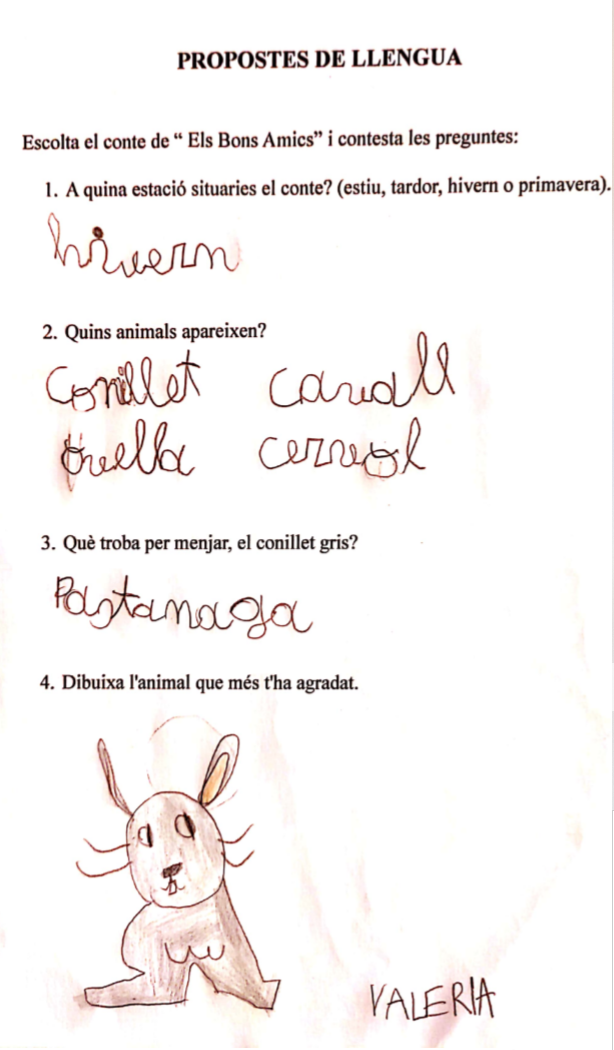 PROPOSTES DE LLENGUA
Escolta el conte de “ Els Bons Amics” i contesta les preguntes:
1. A quina estació situaries el conte? (estiu, tardor, hivern o primavera).
hivern
2. Quins animals apareixen?
Conillet cavall
ovella cervol
3. Què troba per menjar, el conillet gris?
Pastanaga
4. Dibuixa l'animal que més t'ha agradat.
VALERIA